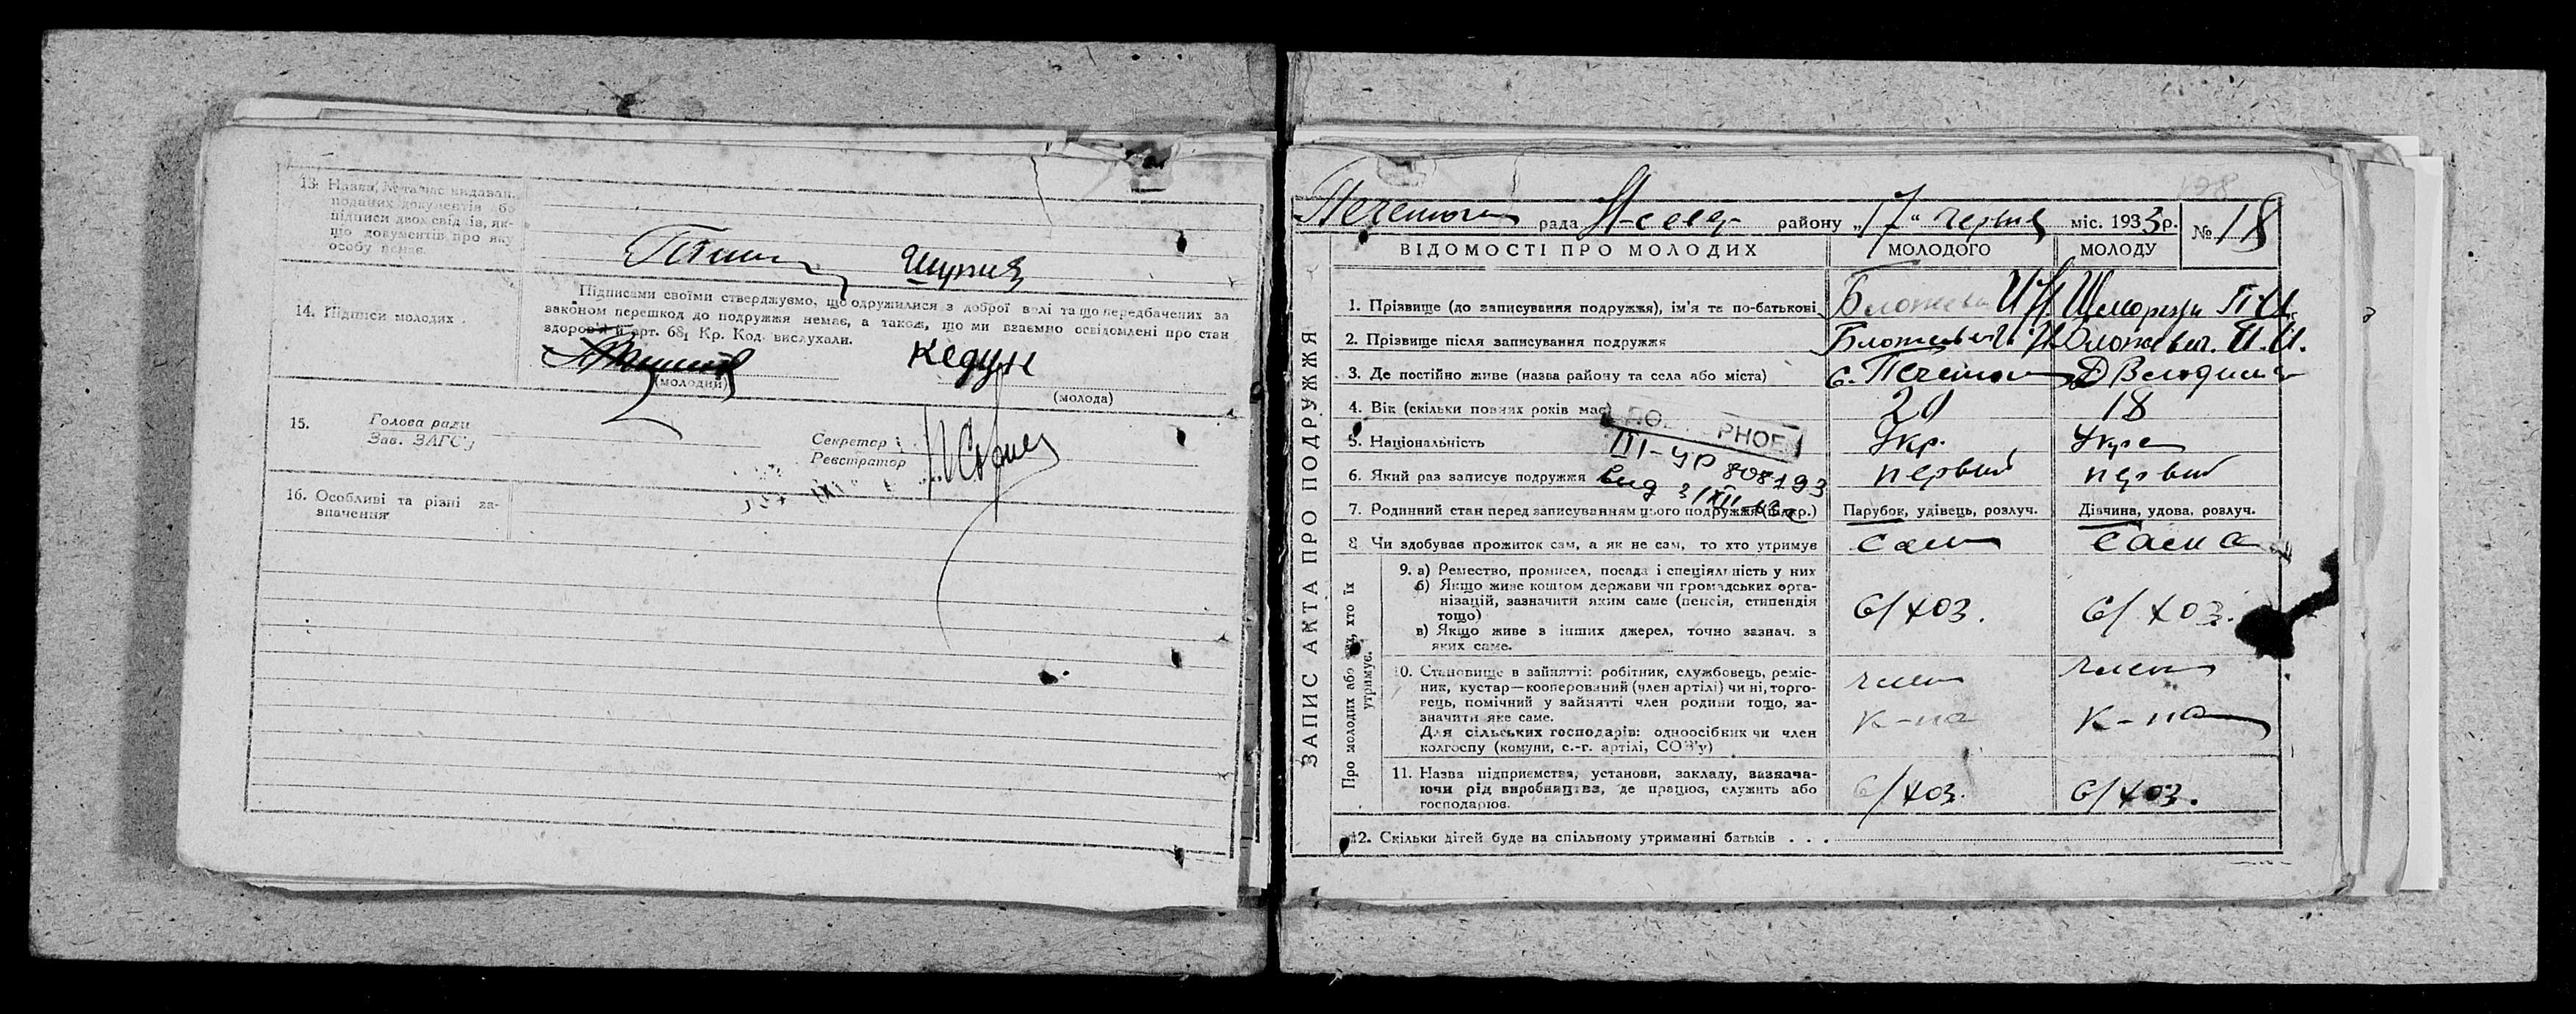 13. Назва, № та час видаван.
поданих документів або
підписи двох свідків, як-
що документів про яку
особу немає
14. Підписи молодих.
Підписами своїми стверджуємо, що одружилися з доброї волі та що передбачених за
законом перешкод до подружжя немає, а також, що ми взаємно освідомлені про стан
здоров'я й арт. 68, Кр. Код. вислухали.
(молодий)
(молода)
15. Голова ради
Зав. ЗАГС'у
Секретар
Реєстратор
16. Особливі та різні за-
значення
рада
району „17“ червня міс. 1933 р. № 18
ВІДОМОСТІ ПРО МОЛОДИХ
МОЛОДОГО
МОЛОДУ
ЗАПИС АКТА ПРО ПОДРУЖЖЯ
1. Прізвище (до записування подружжя), ім'я та по-батькові
2. Прізвище після записування подружжя
3. Де постійно живе (назва району та села або міста) с.
4. Вік (скільки повних років має) 20 18
5. Національність Укр. Укр
III-УР 808193
6. Який раз записує подружжя первый первый
7. Родинний стан перед записуванням цього подружжя (підкр.) Парубок, удівець, розлуч. Дівчина, удова, розлуч.
8. Чи здобуває прожиток сам, а як не сам, то хто утримує сам сама
Про молодих або тих, хто їх
утримує.
9. а) Ремество, промисел, посада і спеціяльність у них
б) Якщо живе коштом держави чи громадських орга-
нізацій, зазначити яким саме (пенсія, стипендія
тощо)
в) Якщо живе з інших джерел, точно зазнач. з
яких саме.
с/хоз. с/хоз.
10. Становище в зайнятті: робітник, службовець, реміс-
ник, кустар—кооперований (член артілі) чи ні, торго-
вець, помічний у зайнятті член родини тощо, за-
значити яке саме.
Для сільських господарів: одноосібник чи член
колгоспу (комуни, с.-г. артілі, СОЗ'у)
член член
к-па к-па
11. Назва підприємства, установи, закладу, зазнача-
ючи рід виробництва, де працює, служить або
господарює.
с/хоз. с/хоз.
12. Скільки дітей буде на спільному утриманні батьків . . .